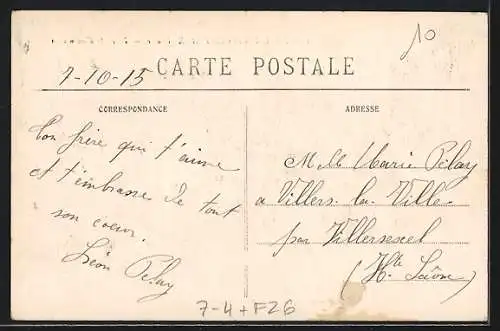 10
7-10-15 CARTE POSTALE
CORRESPONDANCE
ADRESSE
Ton frère qui t'aime
et t'embrasse de tout
son coeur.
Léon Pelay
Melle Marie Pelay
a Villers. la. Ville.
par Villersexel
(Hte Saône)
7-4+F26